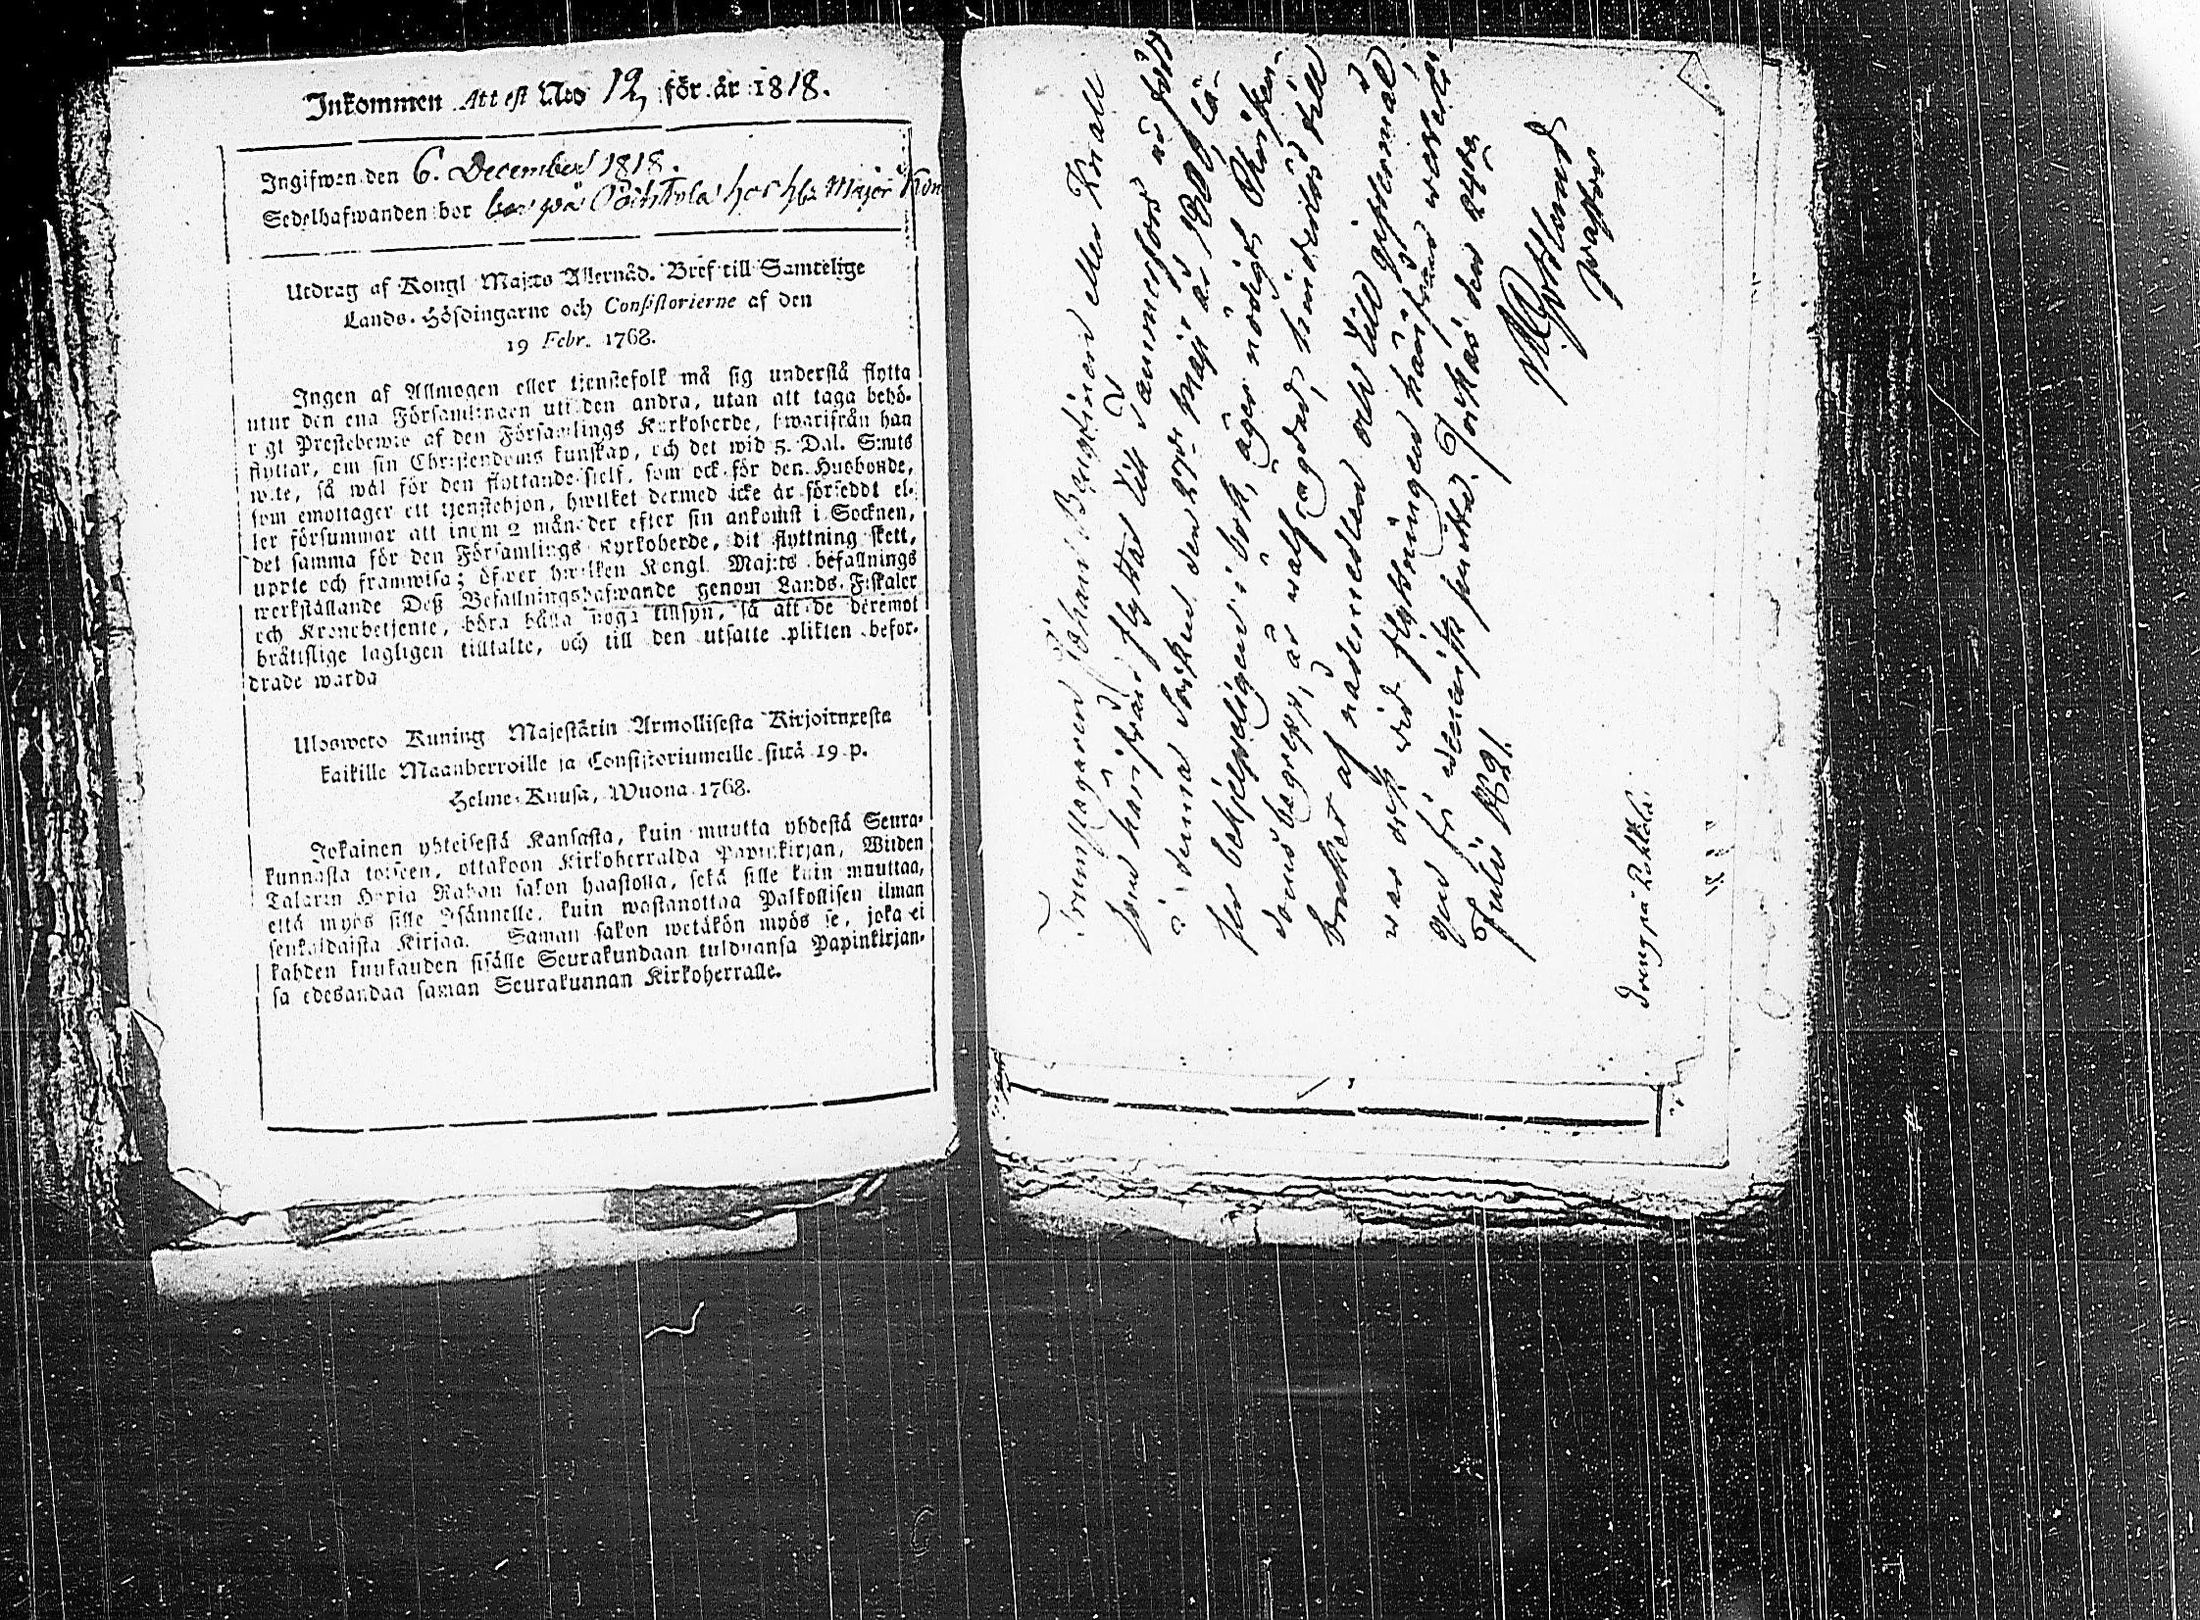 Inkommen Attest N:o 12, för år 1818.
Ingifwen den 6. December 1818.
Sedelhafwanden bor på hos H:r Major
Utdrag af Kongl Maj:ts Allernåd. Bref till Samtelige
Lands-Höfdingarne och Consistorierne af den
19 Febr. 1768.
Ingen af Allmogen eller tjenstefolk må sig understå flytta
utur den ena Församlingen uti den andra, utan att taga behö-
r gt Prestebewis af den Församlings Kyrkoherde, hwarifrån han
flyttar, om sin Christendoms kunskap, och det wid 5. Dal. S:mts
wite, så wäl för den flyttande sielf, som ock för den Husbonde,
som emottager ett tjenstehjon, hwilket dermed icke är försedt el-
ler försummar att inom 2 månader efter sin ankomst i Socknen,
det samma för den Församlings Kyrkoherde, dit flyttning skett,
upte och framwisa; öfwer hwilken Kongl. Maj:ts befallnings
werkställande Deß Befallningshafwande genom Lands-Fiskaler
och Kronobetjente, böra hålla noga tillsyn, så att de deremot
bråttslige lagligen tilltalte, och till den utsatte plikten befor-
drade warda
Ulosweto Kuning Majestätin Armollisesta Kirjoituxesta
kaikille Maanherroille ja Consistoriumeille siitä 19 p.
Helme-Kuusa, Wuona 1768.
Jokainen yhteisestä Kansasta, kuin muutta yhdestä Seura-
kunnasta toiseen, ottakoon Kirkoherralda Papinkirjan, Wiiden
Talarin Hopia Rahan sakon haastolla, sekä sille kuin muuttaa,
että myös sille Isännelle, kuin wastanottaa Palkollisen ilman
senkaldaista Kirjaa. Saman sakon wetäkön myös se, joka ei
kahden kuukauden sisälle Seurakundaan tulduansa Papinkirjan-
sa edesandaa saman Seurakunnan Kirkoherralle.
Johan Bengtinen eller Knall
som härifrån flyttar till Tammerfors är född
i denna Socken den 29de Maji år 1802, lä-
ser behjelpeligen i bok, äger nödigt Christen-
doms begrepp, är wälfrägdad, hindersl. till
bruket af nådemedlen och till giftermål
war ock wid flyttningen härifrån
gen för skrifta. den 24de
Julii 1821.
Gottlund
pastor
Dreng på